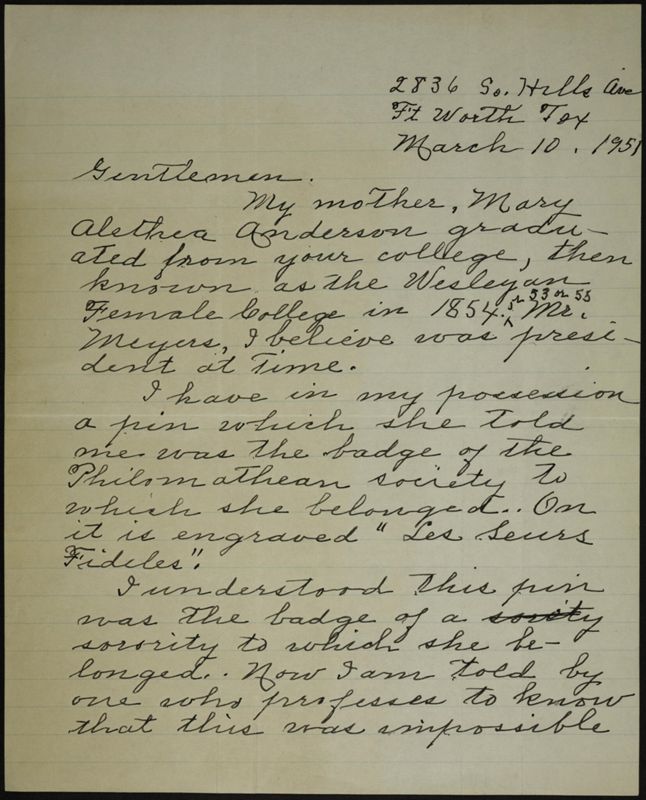 2836 So. Hills Ave
Ft Worth Tex
March 10. 1951
Gentlemen.
My mother, Mary
Alethea Anderson gradu-
ated from your college, then
known as the Wesleyan
Female College in 1854. or 53 or 55 Mr.
Meyers, I believe was presi-
dent at time.
I have in my possession
a pin which she told
me was the badge of the
Philomathean society to
which she belonged.. On
it is engraved "Les Seurs
Fideles".
I understood this pin
was the badge of a society
sorority to which she be-
longed.. Now I am told by
one who professes to know
that this was impossible